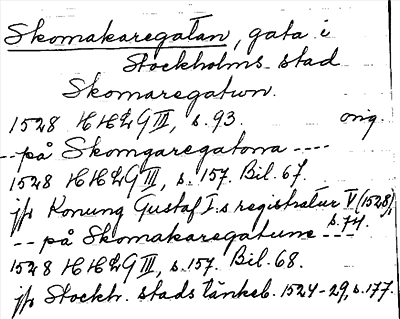 Skomakaregatan, gata i
Stockholms stad
Skomaregatwn.
1528 HHLG III, s. 93. orig.
-- på Skomgaregatona ----
1528 HHLG III, s. 157. Bil. 67.
jfr Konung Gustaf I:s registratur V (1528), s. 74.
-- på Skomakaregatune ---
1528 HHLG III, s. 157. Bil. 68.
jfr Stockh. stads tänkeb. 1524-29, s. 177.